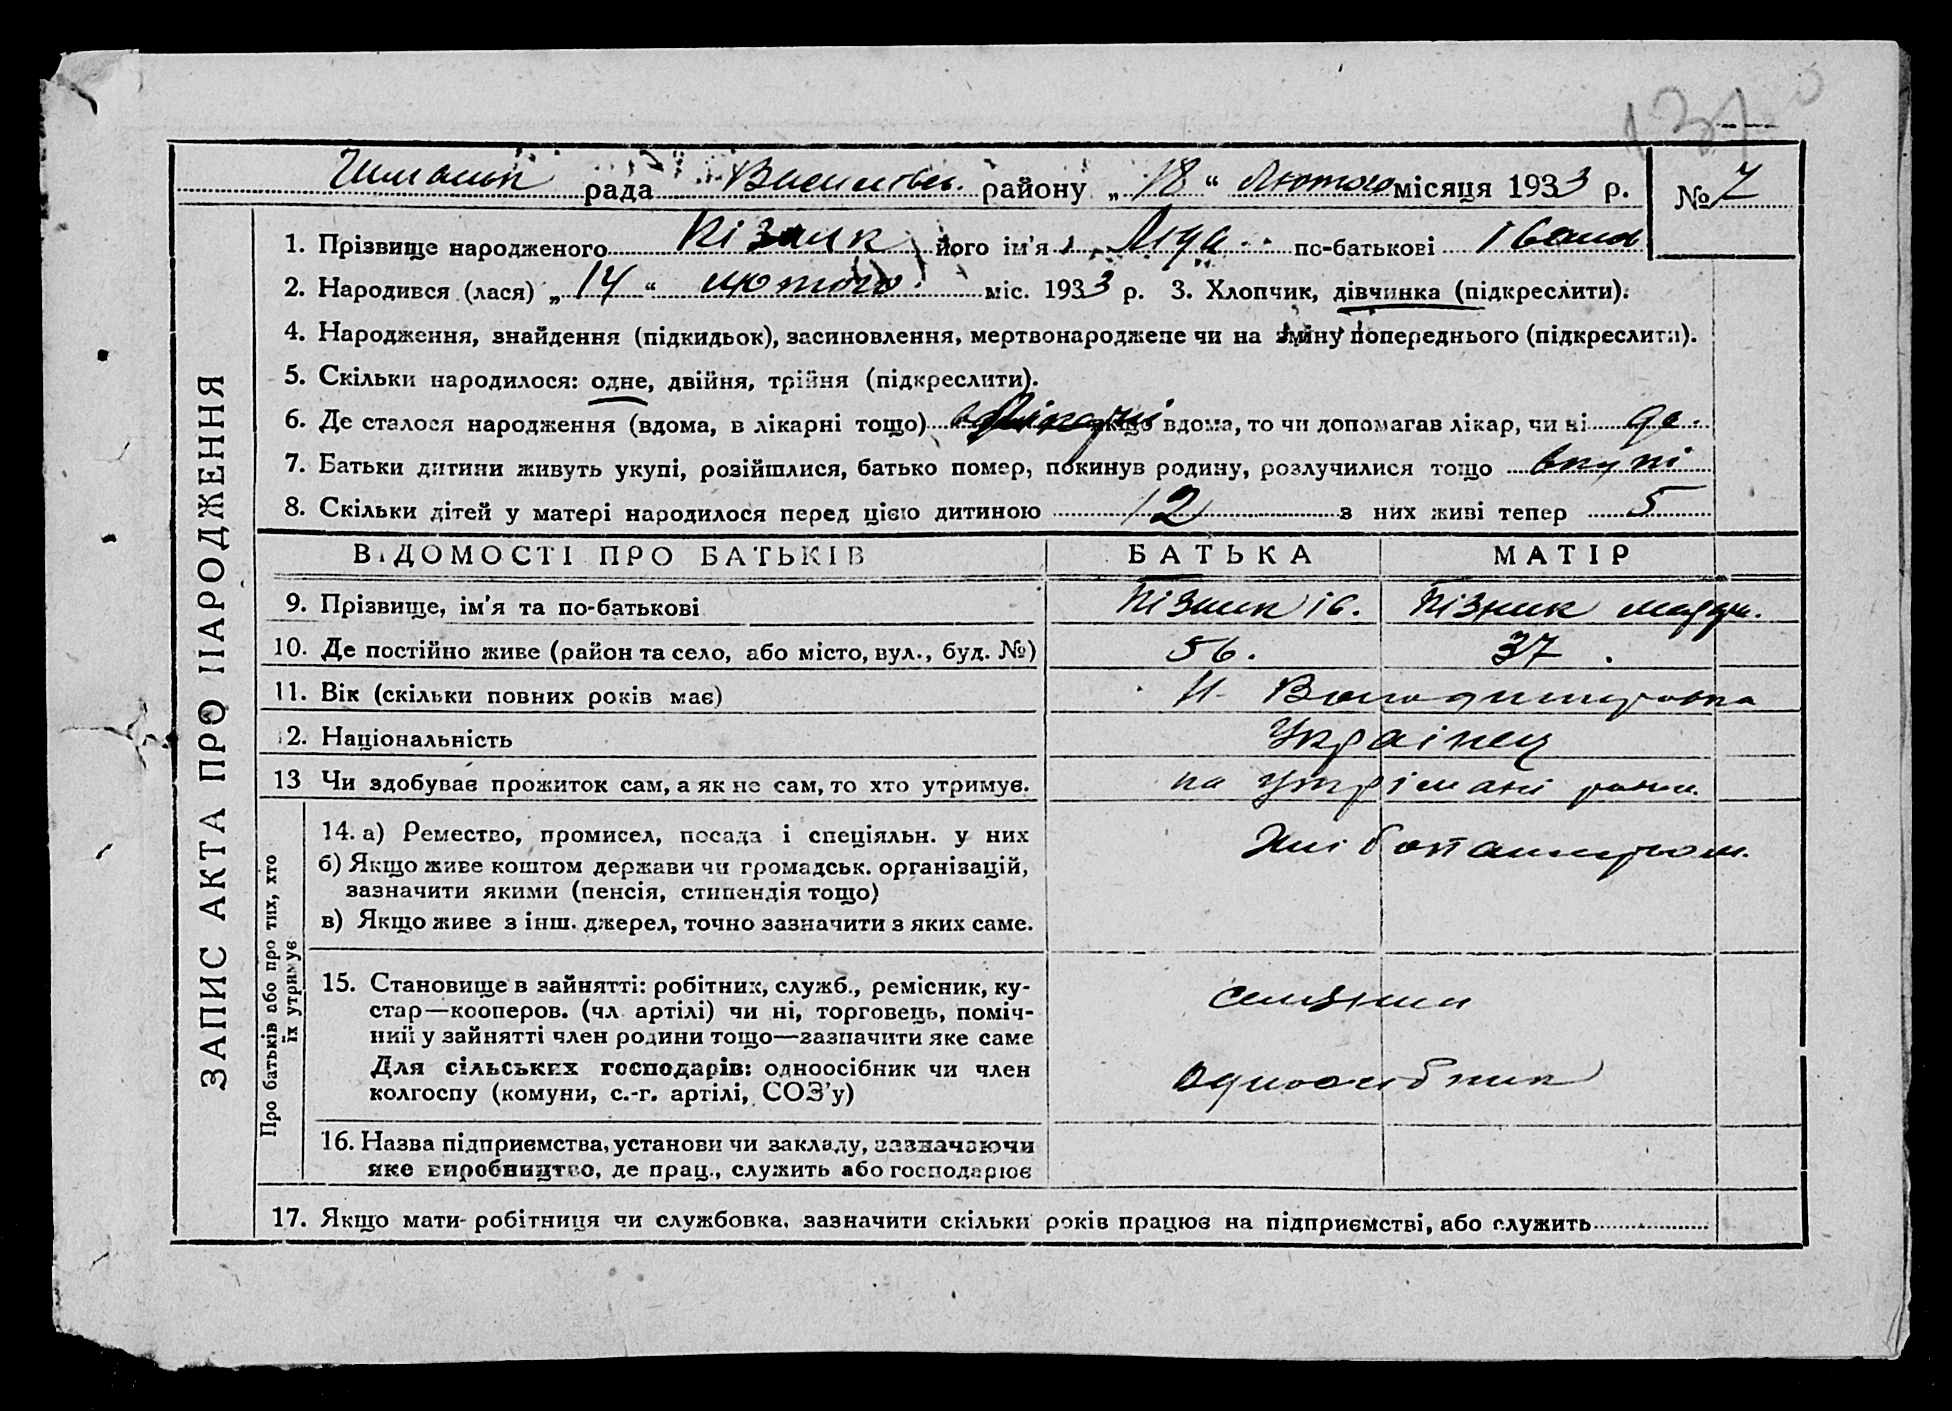 137
рада района „18“ Лютого місяця 1933 р. № 7
1. Прізвище народженого Пізник його ім'я Ліда по-батькові Іванов
2. Народився (лася) „14“ лютого міс. 1933 р. 3. Хлопчик, дівчинка (підкреслити).
4. Народження, знайдення (підкидьок), засиновлення, мертвонароджене чи на зміну попереднього (підкреслити).
5. Скільки народилося: одне, двійня, трійня (підкреслити).
6. Де сталося народження (вдома, в лікарні тощо) якщо вдома, то чи допомагав лікар, чи ні
7. Батьки дитини живуть укупі, розійшлися, батько помер, покинув родину, розлучилися тощо вкупі
8. Скільки дітей у матері народилося перед цією дитиною 12 з них живі тепер 5
ВІДОМОСТІ ПРО БАТЬКІВ БАТЬКА МАТІР
9. Прізвище, ім'я та по-батькові Пізник Ів. Пізник
10. Де постійно живе (район та село, або місто, вул., буд. №) 56. 37.
11. Вік (скільки повних років має) Н-Володимировка
12. Національність Українец
13 Чи здобуває прожиток сам, а як не сам, то хто утримує. на утрімані
14. а) Ремество, промисел, посада і спеціяльн. у них
б) Якщо живе коштом держави чи громадськ. організацій,
зазначити якими (пенсія, стипендія тощо)
в) Якщо живе з інш. джерел, точно зазначити з яких саме.
15. Становище в зайнятті: робітник, служб., ремісник, ку-
стар—кооперов. (чл. артілі) чи ні, торговець, поміч-
ний у зайнятті член родини тощо—зазначити яке саме
Для сільських господарів: одноосібник чи член
колгоспу (комуни, с.-г. артілі, СОЗ'у)
селянин
одноосібник
16. Назва підприємства, установи чи закладу, зазначаючи
яке виробництво, де прац., служить або господарює
17. Якщо мати-робітниця чи службовка, зазначити скільки років працює на підприємстві, або служить
ЗАПИС АКТА ПРО НАРОДЖЕННЯ
Про батьків або про тих, хто
їх утримує